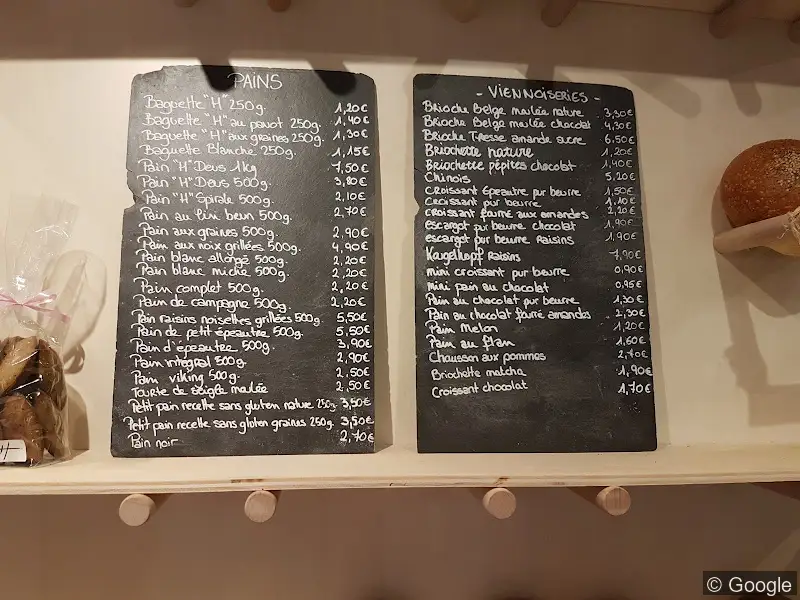 PAINS
Baguette "H" 250g. 1,20€
Baguette "H" au pavot 250g. 1,40€
Baguette "H" aux graines 250g. 1,30€
Baguette Blanche 250g. 1,15€
Pain "H" Deus 1kg 7,50€
Pain "H" Deus 500g. 3,80€
Pain "H" Spirale 500g. 2,10€
Pain au lin brun 500g. 2,70€
Pain aux graines 500g. 2,90€
Pain aux noix grillées 500g. 4,90€
Pain blanc allongé 500g. 2,20€
Pain blanc miche 500g. 2,20€
Pain complet 500g. 2,20€
Pain de campagne 500g. 2,20€
Pain raisins noisettes grillées 500g. 5,50€
Pain de petit épeautre 500g. 5,50€
Pain d'épeautre 500g. 3,90€
Pain intégral 500g. 2,90€
Pain viking 500g. 2,50€
Tourte de seigle moulée 2,50€
Petit pain recette sans gluten nature 250g. 3,50€
Petit pain recette sans gluten graines 250g. 3,50€
Pain noir 2,70€
- VIENNOISERIES -
Brioche Belge moulée nature 3,30€
Brioche Belge moulée chocolat 4,30€
Brioche Tresse amande sucre 6,50€
Briochette nature 1,20€
Briochette pépites chocolat 1,40€
Chinois 5,20€
Croissant épeautre pur beurre 1,50€
Croissant pur beurre 1,10€
croissant fourré aux amandes 2,20€
escargot pur beurre chocolat 1,90€
escargot pur beurre raisins 1,90€
Kugelhopf Raisins 7,90€
mini croissant pur beurre 0,90€
mini pain au chocolat 0,95€
Pain au chocolat pur beurre 1,30€
Pain au chocolat fourré amandes 2,30€
Pain Melon 1,20€
Pain au flan 1,60€
Chausson aux pommes 2,10€
Briochette matcha 1,90€
Croissant chocolat 1,70€
© Google